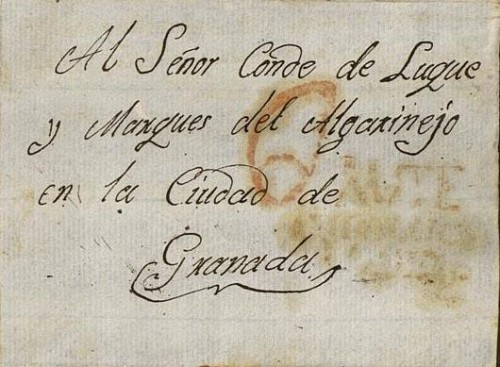 Al Señor Conde de Luque
y Marques del Algarinejo
en la Ciudad de
Granada
6